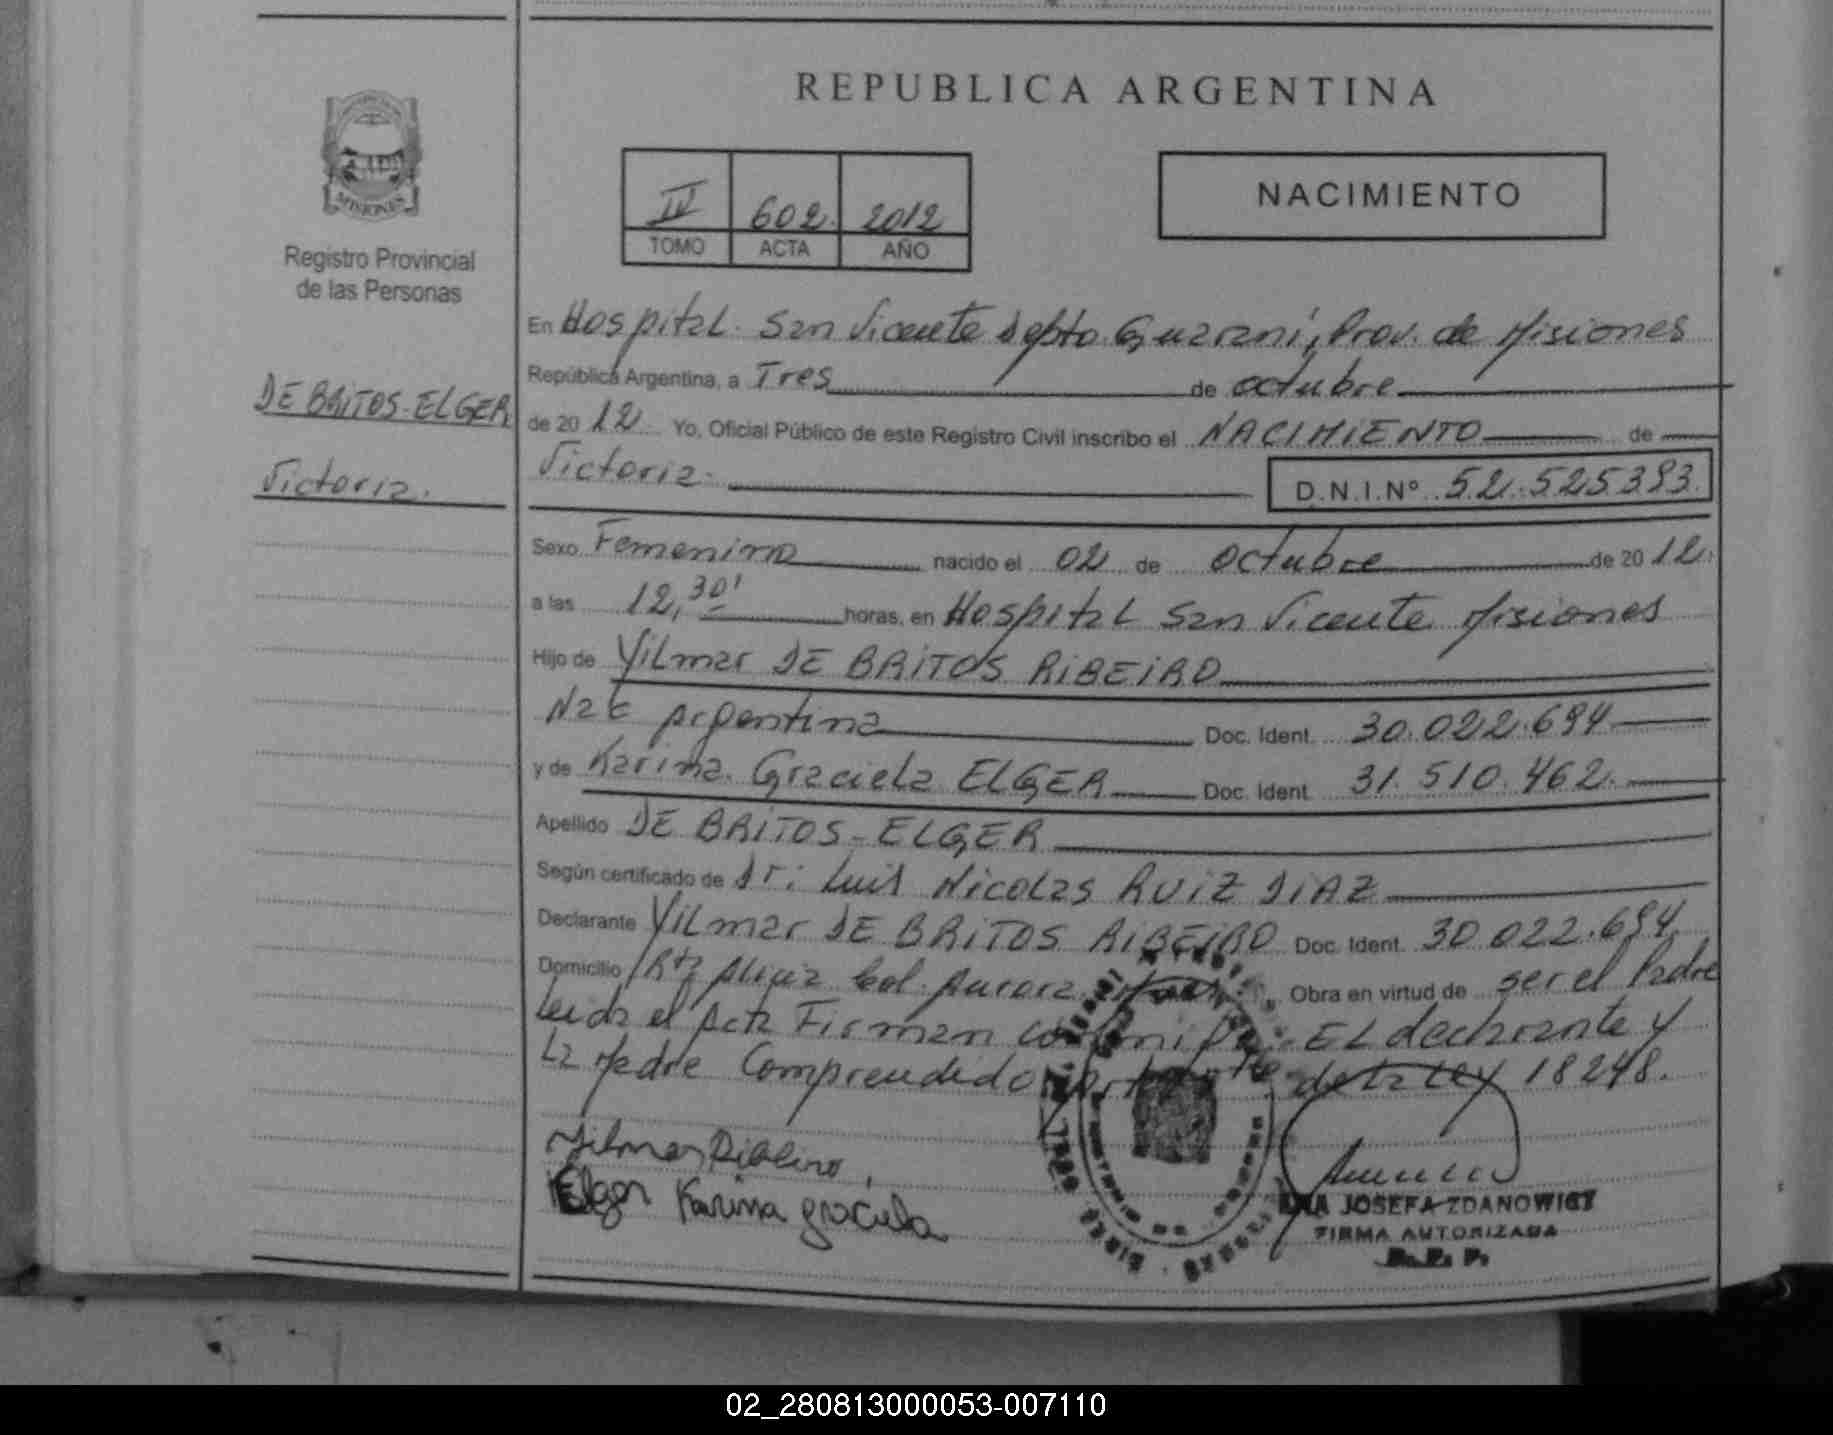 REPUBLICA ARGENTINA
IV 602. 2012
TOMO ACTA AÑO
NACIMIENTO
MISIONES
Registro Provincial
de las Personas
DE BRITOS-ELGER
Victoria.
En Hospital San Vicente Depto. Guarani, Prov. de Misiones
República Argentina, a Tres de octubre
de 2012. Yo, Oficial Público de este Registro Civil inscribo el NACIMIENTO de
Victoria. D.N.I.Nº 52.525393.
Sexo Femenino nacido el 02 de octubre de 2012.
a las 12,30' horas, en Hospital San Vicente Misiones
Hijo de Yilmar DE BRITOS RIBEIRO
Nac Argentina Doc. Ident. 30.022.694
y de Karina Graciela ELGER Doc. Ident. 31.510.462.
Apellido DE BRITOS-ELGER
Según certificado de Dr: Luis Nicolas RUIZ DIAZ
Declarante Yilmar DE BRITOS RIBEIRO Doc. Ident. 30.022.694.
Domicilio Col. Aurora Obra en virtud de ser el Padre
Leida el Acta Firman El declarante y
La Madre Comprendido de la Ley 18248.
Yilmar Ribeiro
Elger Karina graciela
ANA JOSEFA ZDANOWICZ
FIRMA AUTORIZADA
R. P. P.
02_280813000053-007110